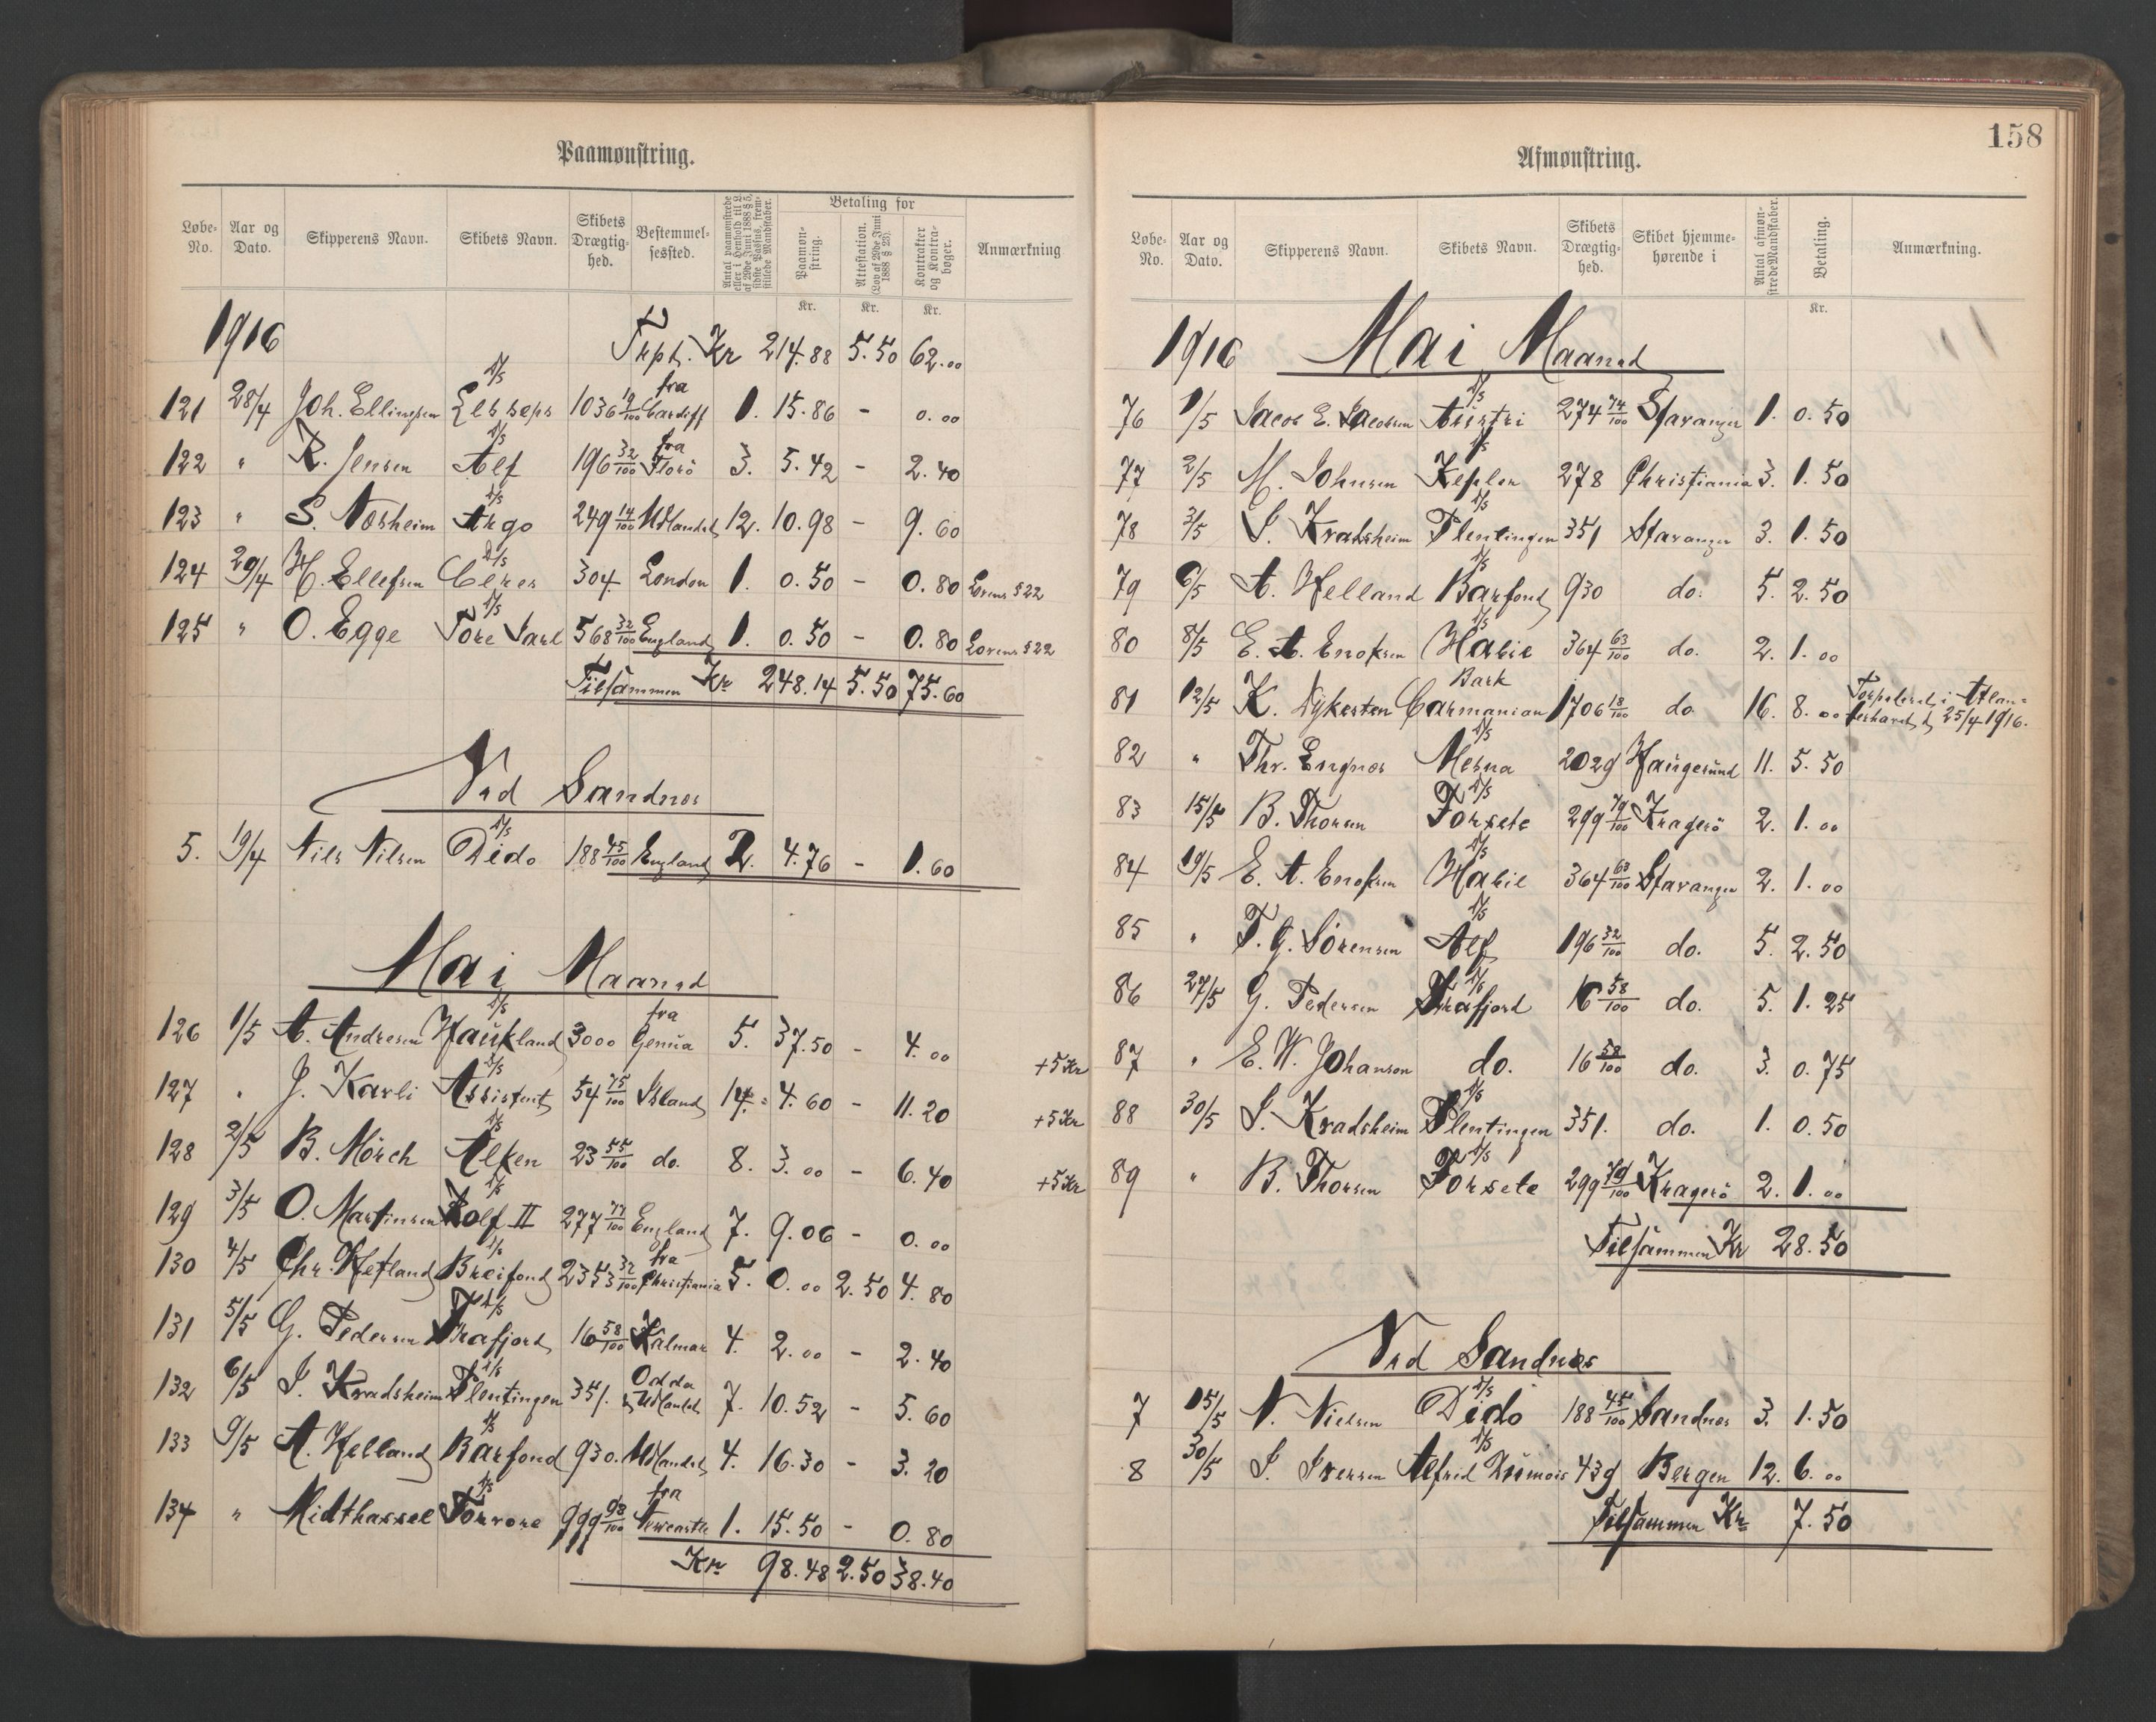 Paamønstring.
Løbe-No. Aar og Dato. Skipperens Navn. Skibets Navn. Skibets Drægtig-hed. Bestemmel-sessted. Antal paamønstrede eller i Henhold til L. af 29de Juni 1888 § 5, sidste Passus, frem-stillede Mandskaber. Betaling for Paamøn-string. Attestation. (Lov af 29de Juni 1888 § 23). Kontrakter og Kontra-bøger. Anmærkning
Kr. Kr. Kr.
1916 Trpt. Kr 214.88 5.50 62.00
121 28/4 Joh. Ellingsen D/S Lesseps 1036 19/100 fra Cardiff 1. 15.86 - 0.00
122 " R. Jensen D/S Alf 196 32/100 fra Florö 3. 5.42 - 2.40
123 " S. Nosheim D/S Argo 249 14/100 Udlandet 12. 10.98 - 9.60
124 29/4 H. Ellefsen D/S Ceres 304 London 1. 0.50 - 0.80 Lovens § 22
125 " O. Egge D/S Tore Jarl 568 32/100 England 1. 0.50 - 0.80 Lovens § 22
Tilsammen Kr 248.14 5.50 75.60
Ved Sandnes
5. 19/4 Nils Nilsen D/S Dido 188 45/100 England 2. 4.76 - 1.60
Mai Maaned
126 1/5 A. Andresen D/S Haukland 3000 fra Genua 5. 37.50 - 4.00
127 " J. Karli D/S Assistent 54 75/100 Island 14. 4.60 - 11.20 +5 Kr
128 2/5 B. Mörch D/S Alken 23 55/100 do. 8. 3.00 - 6.40 +5 Kr
129 3/5 O. Martinsen D/S Rolf II 277 77/100 England 7. 9.06 - 0.00 +5 Kr
130 4/5 Chr. Hetland D/S Breifond 2353 32/100 fra Christiania 5. 0.00 2.50 4.80
131 5/5 G. Pedersen D/S Frafjord 16 58/100 Kalmar 4. 2.00 - 2.40
132 6/5 S. Kvadsheim D/S Flentingen 351. Odda & Udlandet 7. 10.52 - 5.60
133 9/5 A. Helland D/S Barfond 930. Udlandet 4. 16.30 - 3.20
134 " Midthassel D/S Torvore 999 93/100 fra Newcastle 1. 15.50 - 0.80
Kr 98.48 2.50 38.40
158
Afmønstring.
Løbe-No. Aar og Dato. Skipperens Navn. Skibets Navn. Skibets Drægtig-hed. Skibet hjemme-hørende i Antal afmøn-strede Mandskaber. Betaling. Anmærkning.
Kr.
1916 Mai Maaned
76 1/5 Jacob E. Jacobsen D/S Austri 274 74/100 Stavanger 1. 0.50
77 2/5 M. Johnsen D/S Kepler 278 Christiania 3. 1.50
78 3/5 S. Kvadsheim D/S Flentingen 351 Stavanger 3. 1.50
79 6/5 A. Helland D/S Barfond 930 do. 5. 2.50
80 8/5 E. A. Enoksen D/S Habil 364 63/100 do. 2. 1.00
81 12/5 K. Dykesten Bark Carmanian 1706 18/100 do 16. 8.00 Torpederet i Atlan-terhavet d. 25/4 1916.
82 " Thr. Engnes D/S Mesna 2029 Haugesund 11. 5.50
83 15/5 B. Thorsen D/S Forsete 299 79/100 Kragerö 2. 1.00
84 19/5 E. A. Enoksen D/S Habil 364 63/100 Stavanger 2. 1.00
85 " T. G. Sörensen D/S Alf 196 32/100 do. 5. 2.50
86 27/5 G. Pedersen D/S Frafjord 16 58/100 do. 5. 1.25
87 " E. W. Johanson do. 16 58/100 do. 3. 0.75
88 30/5 S. Kvadsheim D/S Flentingen 351. do. 1. 0.50
89 " B. Thorsen D/S Forsete 299 79/100 Kragerö 2. 1.00
Tilsammen Kr 28.50
Ved Sandnes
7 15/5 N. Nielsen D/S Dido 188 45/100 Sandnes 3. 1.50
8 30/5 S. Iversen D/S Alfred Dumois 439 Bergen 12. 6.00
Tilsammen Kr 7.50